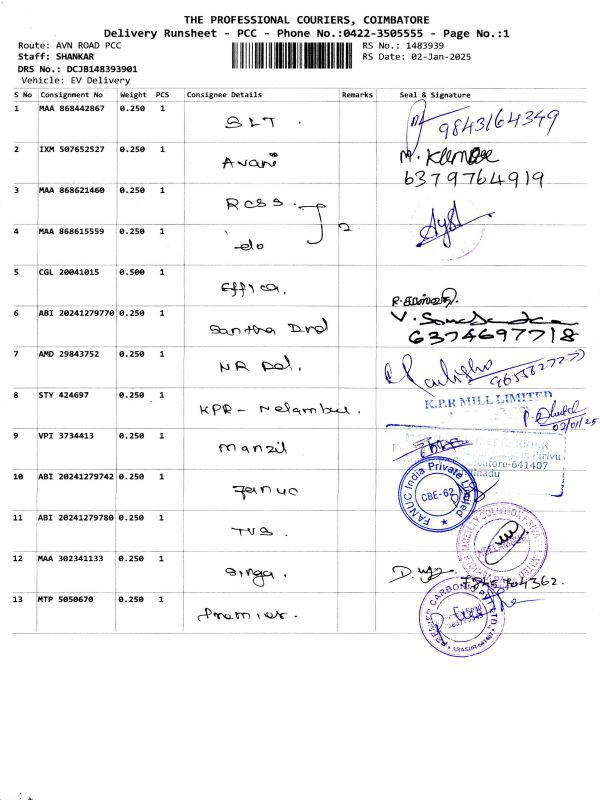 THE PROFESSIONAL COURIERS, COIMBATORE
Delivery Runsheet - PCC - Phone No.:0422-3505555 - Page No.:1
Route: AVN ROAD PCC
RS No.: 1483939
Staff: SHANKAR
RS Date: 02-Jan-2025
DRS No.: DCJB148393901
Vehicle: EV Delivery
S No Consignment No Weight PCS Consignee Details Remarks Seal & Signature
1 MAA 868442867 0.250 1 SLT. 9843164349
2 IXM 507652527 0.250 1 Avani
6379764919
3 MAA 868621460 0.250 1 RCSS.
2
4 MAA 868615559 0.250 1 -do
5 CGL 20041015 0.500 1 Effica.
6 ABI 20241279770 0.250 1 Santha
6374697718
7 AMD 29843752 0.250 1 NR
8 STY 424697 0.250 1 KPR-
K.P.R MILL LIMITED
02/01/25
9 VPI 3734413 0.250 1 Manzil
10 ABI 20241279742 0.250 1 Fanuc
FANUC India Private Limited
CBE-62
11 ABI 20241279780 0.250 1 TVS.
12 MAA 302341133 0.250 1 Singa.
13 MTP 5050670 0.250 1 Premier.